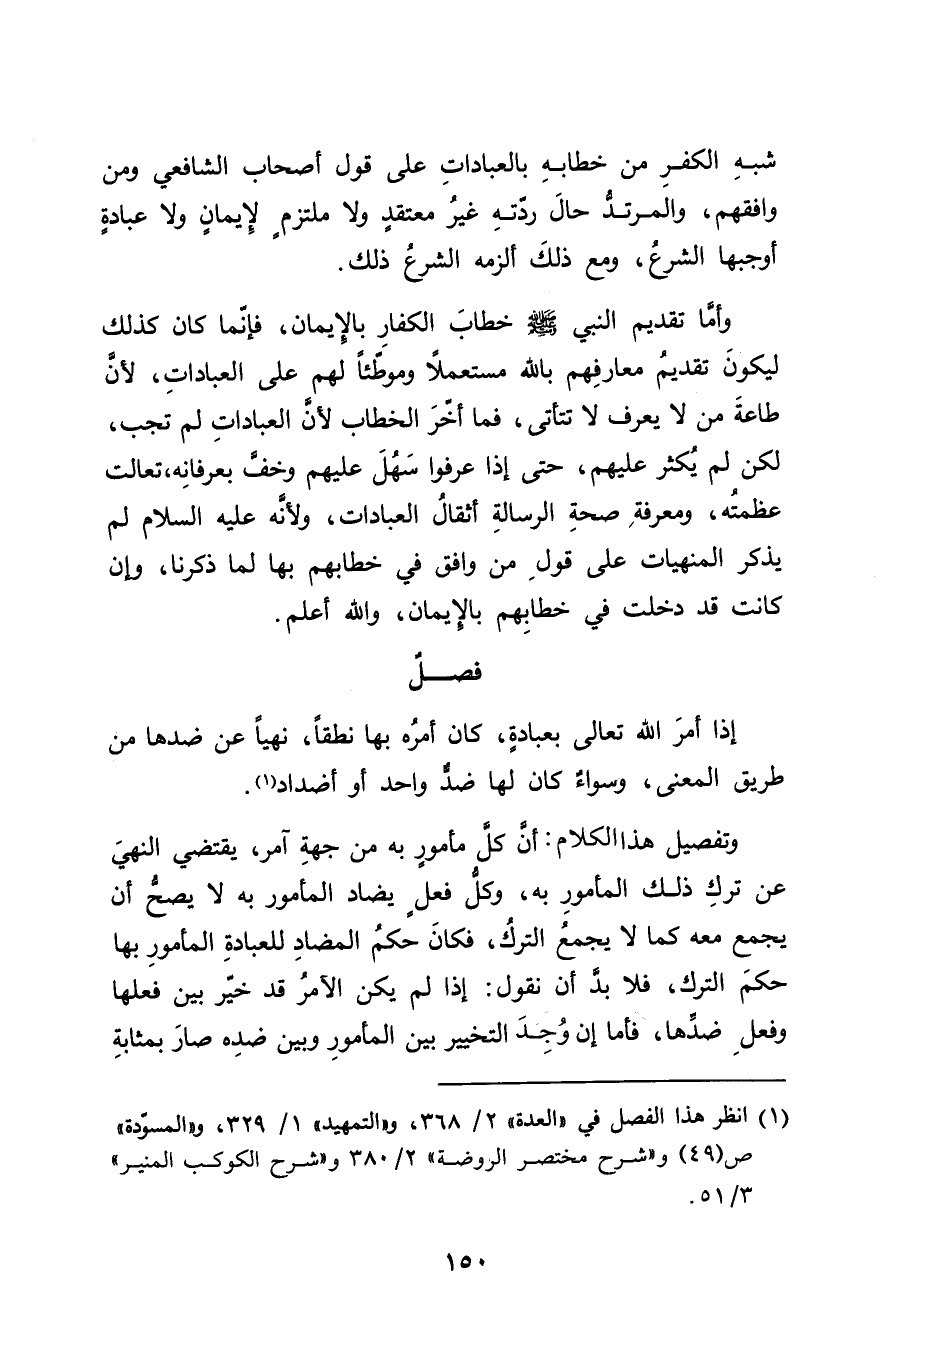 شبهِ الكفرِ من خطابهِ بالعباداتِ على قول أصحاب الشافعي ومن
وافقهم، والمرتدُّ حالَ ردّتهِ غيرُ معتقدٍ ولا ملتزمٍ لإيمانٍ ولا عبادةٍ
أوجبها الشرعُ، ومع ذلكَ ألزمه الشرعُ ذلك.
وأمَّا تقديم النبي ﷺ خطابَ الكفارِ بالإيمان، فإنّما كان كذلك
ليكونَ تقديمُ معارفِهم بالله مستعملاً وموطّئاً لهم على العباداتِ، لأنَّ
طاعةَ من لا يعرف لا تتأتى، فما أخّرَ الخطاب لأنَّ العباداتِ لم تجب،
لكن لم يُكثر عليهم، حتى إذا عرفوا سَهُلَ عليهم وخفَّ بعرفانِه،تعالت
عظمتُه، ومعرفةِ صحةِ الرسالةِ أثقالُ العبادات، ولأنَّه عليه السلام لم
يذكر المنهيات على قولِ من وافق في خطابهم بها لما ذكرنا، وإن
كانت قد دخلت في خطابِهم بالإيمان، والله أعلم.
فصـــلٌ
إذا أمرَ الله تعالى بعبادةٍ، كان أمرُه بها نطقاً، نهياً عن ضدها من
طريق المعنى، وسواءً كان لها ضدٌّ واحد أو أضداد(١).
وتفصيل هذا الكلام: أنَّ كلَّ مأمورٍ به من جهةِ آمر، يقتضي النهيَ
عن تركِ ذلـك المأمورِ به، وكلُّ فعلٍ يضاد المأمور به لا يصحُّ أن
يجمع معه كما لا يجمعُ التركُ، فكانَ حكمُ المضادِ للعبادةِ المأمورِ بها
حكمَ الترك، فلا بدَّ أن نقول: إذا لم يكن الآمرُ قد خيّر بين فعلها
وفعلِ ضدِّها، فأما إن وُجِدَ التخيير بين المأمورِ وبين ضدِه صارَ بمثابةِ
(١) انظر هذا الفصل في «العدة» ٢/ ٣٦٨، و«التمهيد» ١/ ٣٢٩، و«المسوّدة»
ص(٤٩) و«شـرح مختصـر الروضـة» ٢/ ٣٨٠ و«شرح الكوكـب المنيـر»
٣/ ٥١.
١٥٠